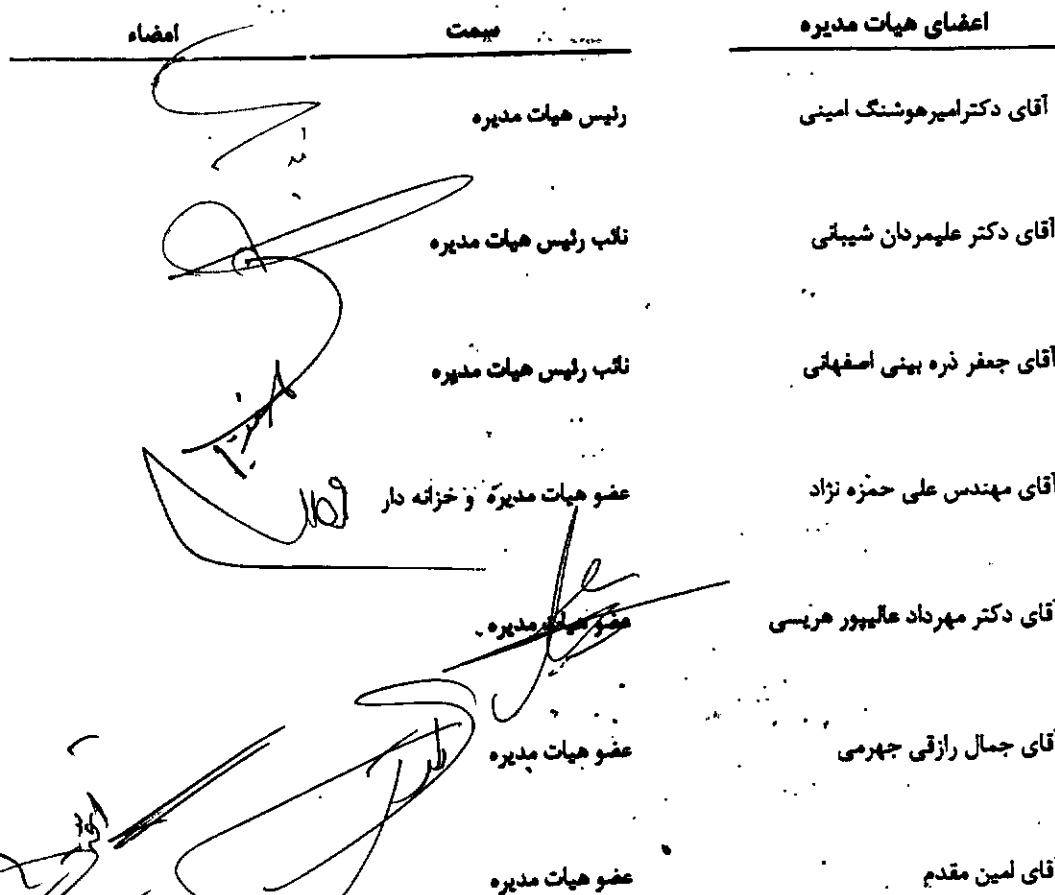 اعضای هیات مدیره سمت امضاء
آقای دکترامیرهوشنگ امینی رئیس هیات مدیره
آقای دکتر علیمردان شیبانی نائب رئیس هیات مدیره
آقای جعفر ذره بینی اصفهانی نائب رئیس هیات مدیره
آقای مهندس علی حمزه نژاد عضو هیات مدیره و خزانه دار
آقای دکتر مهرداد عالیپور هریسی عضو هیات مدیره
قای جمال رازقی جهرمی عضو هیات مدیره
قای امین مقدم عضو هیات مدیره